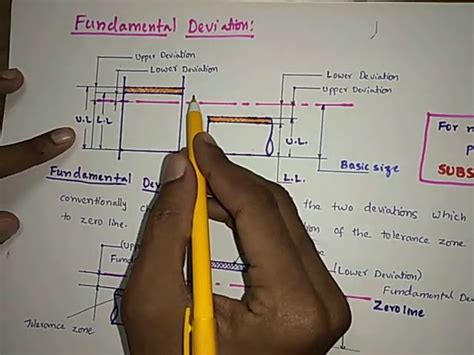 Fundamental Deviation:
Upper Deviation
Lower Deviation
Lower Deviation
Upper Deviation
U.L.
L.L
U.L.
L.L.
Basic size
For
SUBS
Fundamental
conventionally
the two deviations which
to zero line.
of the tolerance zone
(Lower Deviation)
Fundamental De
Zero line
Tolerance zone